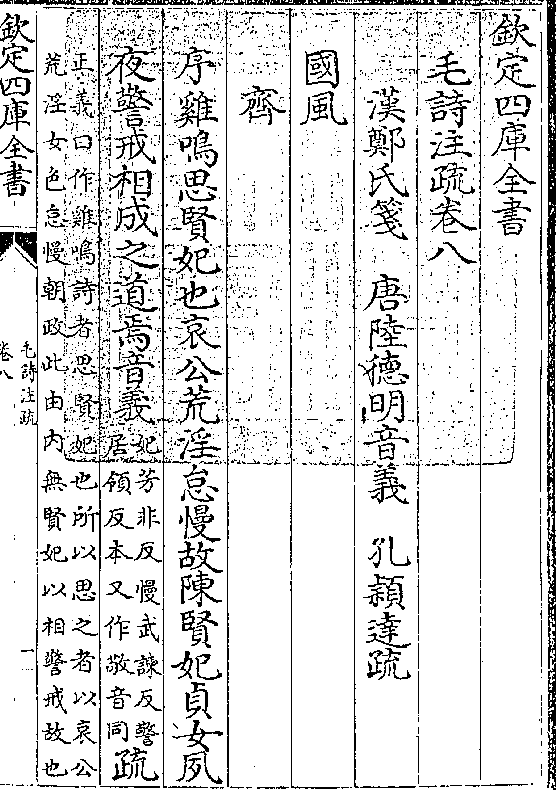 欽定四庫全書
毛詩注疏卷八
漢鄭氏箋　唐陸德明音義　孔穎達疏
國風
齊
序雞鳴思賢妃也哀公荒淫怠慢故陳賢妃貞女夙
夜警戒相成之道焉音義妃芳非反慢武諫反警
居領反本又作敬音同疏
正義曰作雞鳴詩者思賢妃也所以思之者以哀公
荒淫女色怠慢朝政此由内無賢妃以相警戒故也
欽定四庫全書
毛詩注疏
卷八
一